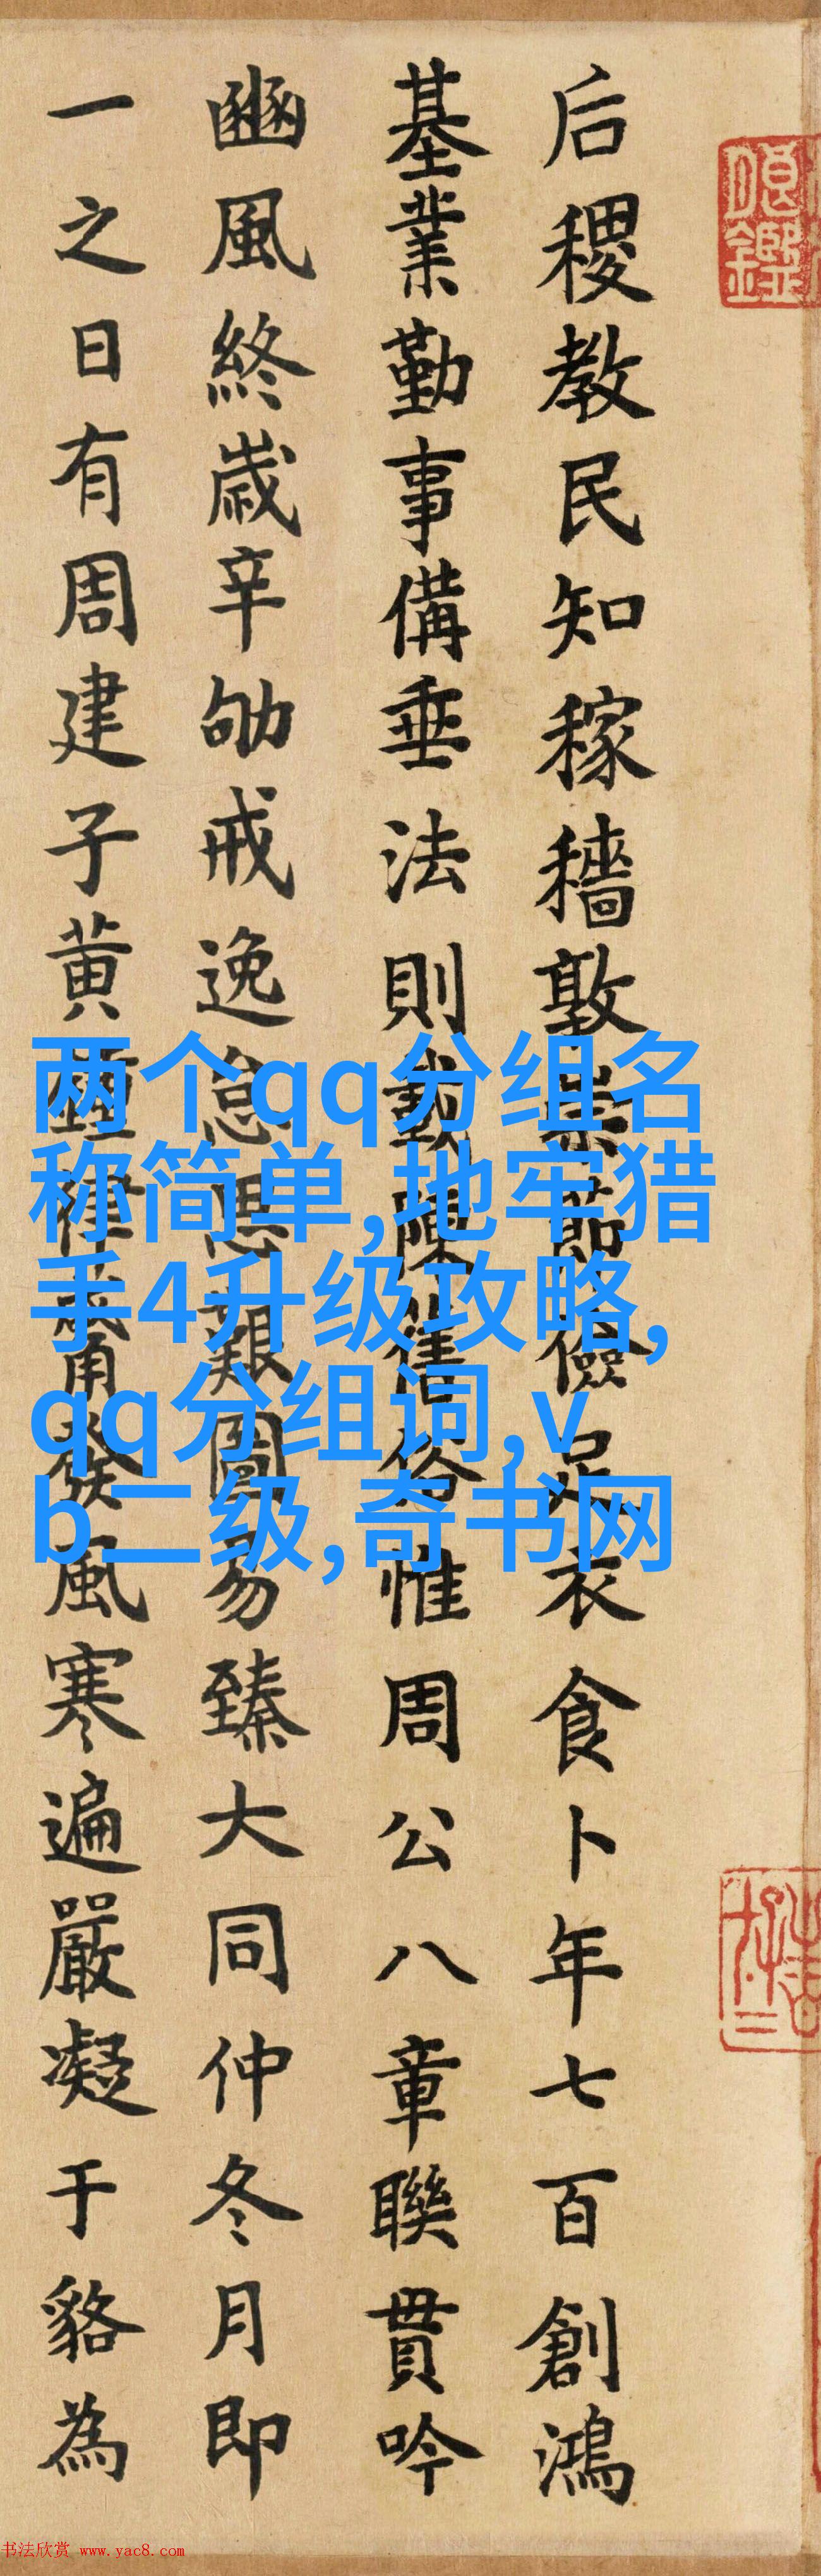 后稷教民知稼穡敦崇節儉足衣食卜年七百創鴻
基業勤事備垂法則載陳舊俗惟周公八章聯貫吟
豳風終歲辛劬戒逸怠思艱圖易臻大同仲冬月即
一之日有周建子黃鐘律觱發風寒遍嚴凝于貉為
两个qq分组名
称简单,地牢猎
手4升级攻略,
qq分组词,v
b二级,奇书网
书法欣赏 www.yac8.com